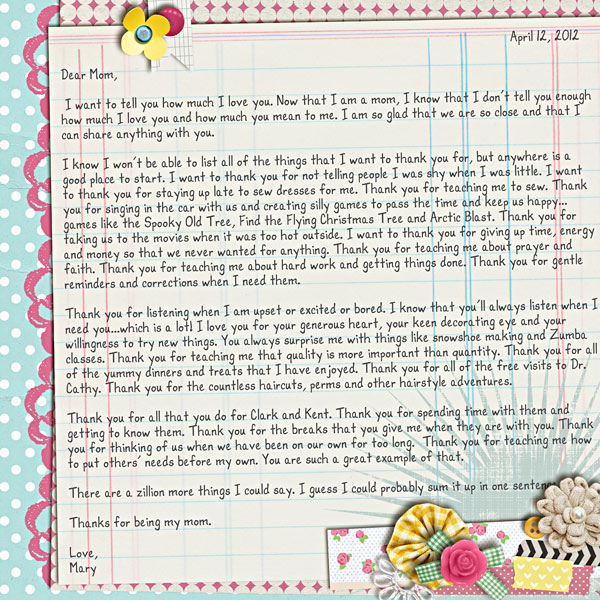 April 12, 2012
Dear Mom,
I want to tell you how much I love you. Now that I am a mom, I know that I don't tell you enough
how much I love you and how much you mean to me. I am so glad that we are so close and that I
can share anything with you.
I know I won't be able to list all of the things that I want to thank you for, but anywhere is a
good place to start. I want to thank you for not telling people I was shy when I was little. I want
to thank you for staying up late to sew dresses for me. Thank you for teaching me to sew. Thank
you for singing in the car with us and creating silly games to pass the time and keep us happy...
games like the Spooky Old Tree, Find the Flying Christmas Tree and Arctic Blast. Thank you for
taking us to the movies when it was too hot outside. I want to thank you for giving up time, energy
and money so that we never wanted for anything. Thank you for teaching me about prayer and
faith. Thank you for teaching me about hard work and getting things done. Thank you for gentle
reminders and corrections when I need them.
Thank you for listening when I am upset or excited or bored. I know that you'll always listen when I
need you...which is a lot! I love you for your generous heart, your keen decorating eye and your
willingness to try new things. You always surprise me with things like snowshoe making and Zumba
classes. Thank you for teaching me that quality is more important than quantity. Thank you for all
of the yummy dinners and treats that I have enjoyed. Thank you for all of the free visits to Dr.
Cathy. Thank you for the countless haircuts, perms and other hairstyle adventures.
Thank you for all that you do for Clark and Kent. Thank you for spending time with them and
getting to know them. Thank you for the breaks that you give me when they are with you. Thank
you for thinking of us when we have been on our own for too long. Thank you for teaching me how
to put others' needs before my own. You are such a great example of that.
There are a zillion more things I could say. I guess I could probably sum it up in one
Thanks for being my mom.
Love,
Mary